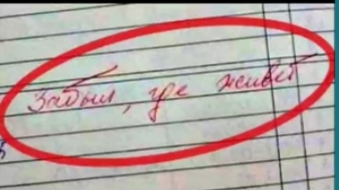 Забыл, где живёт